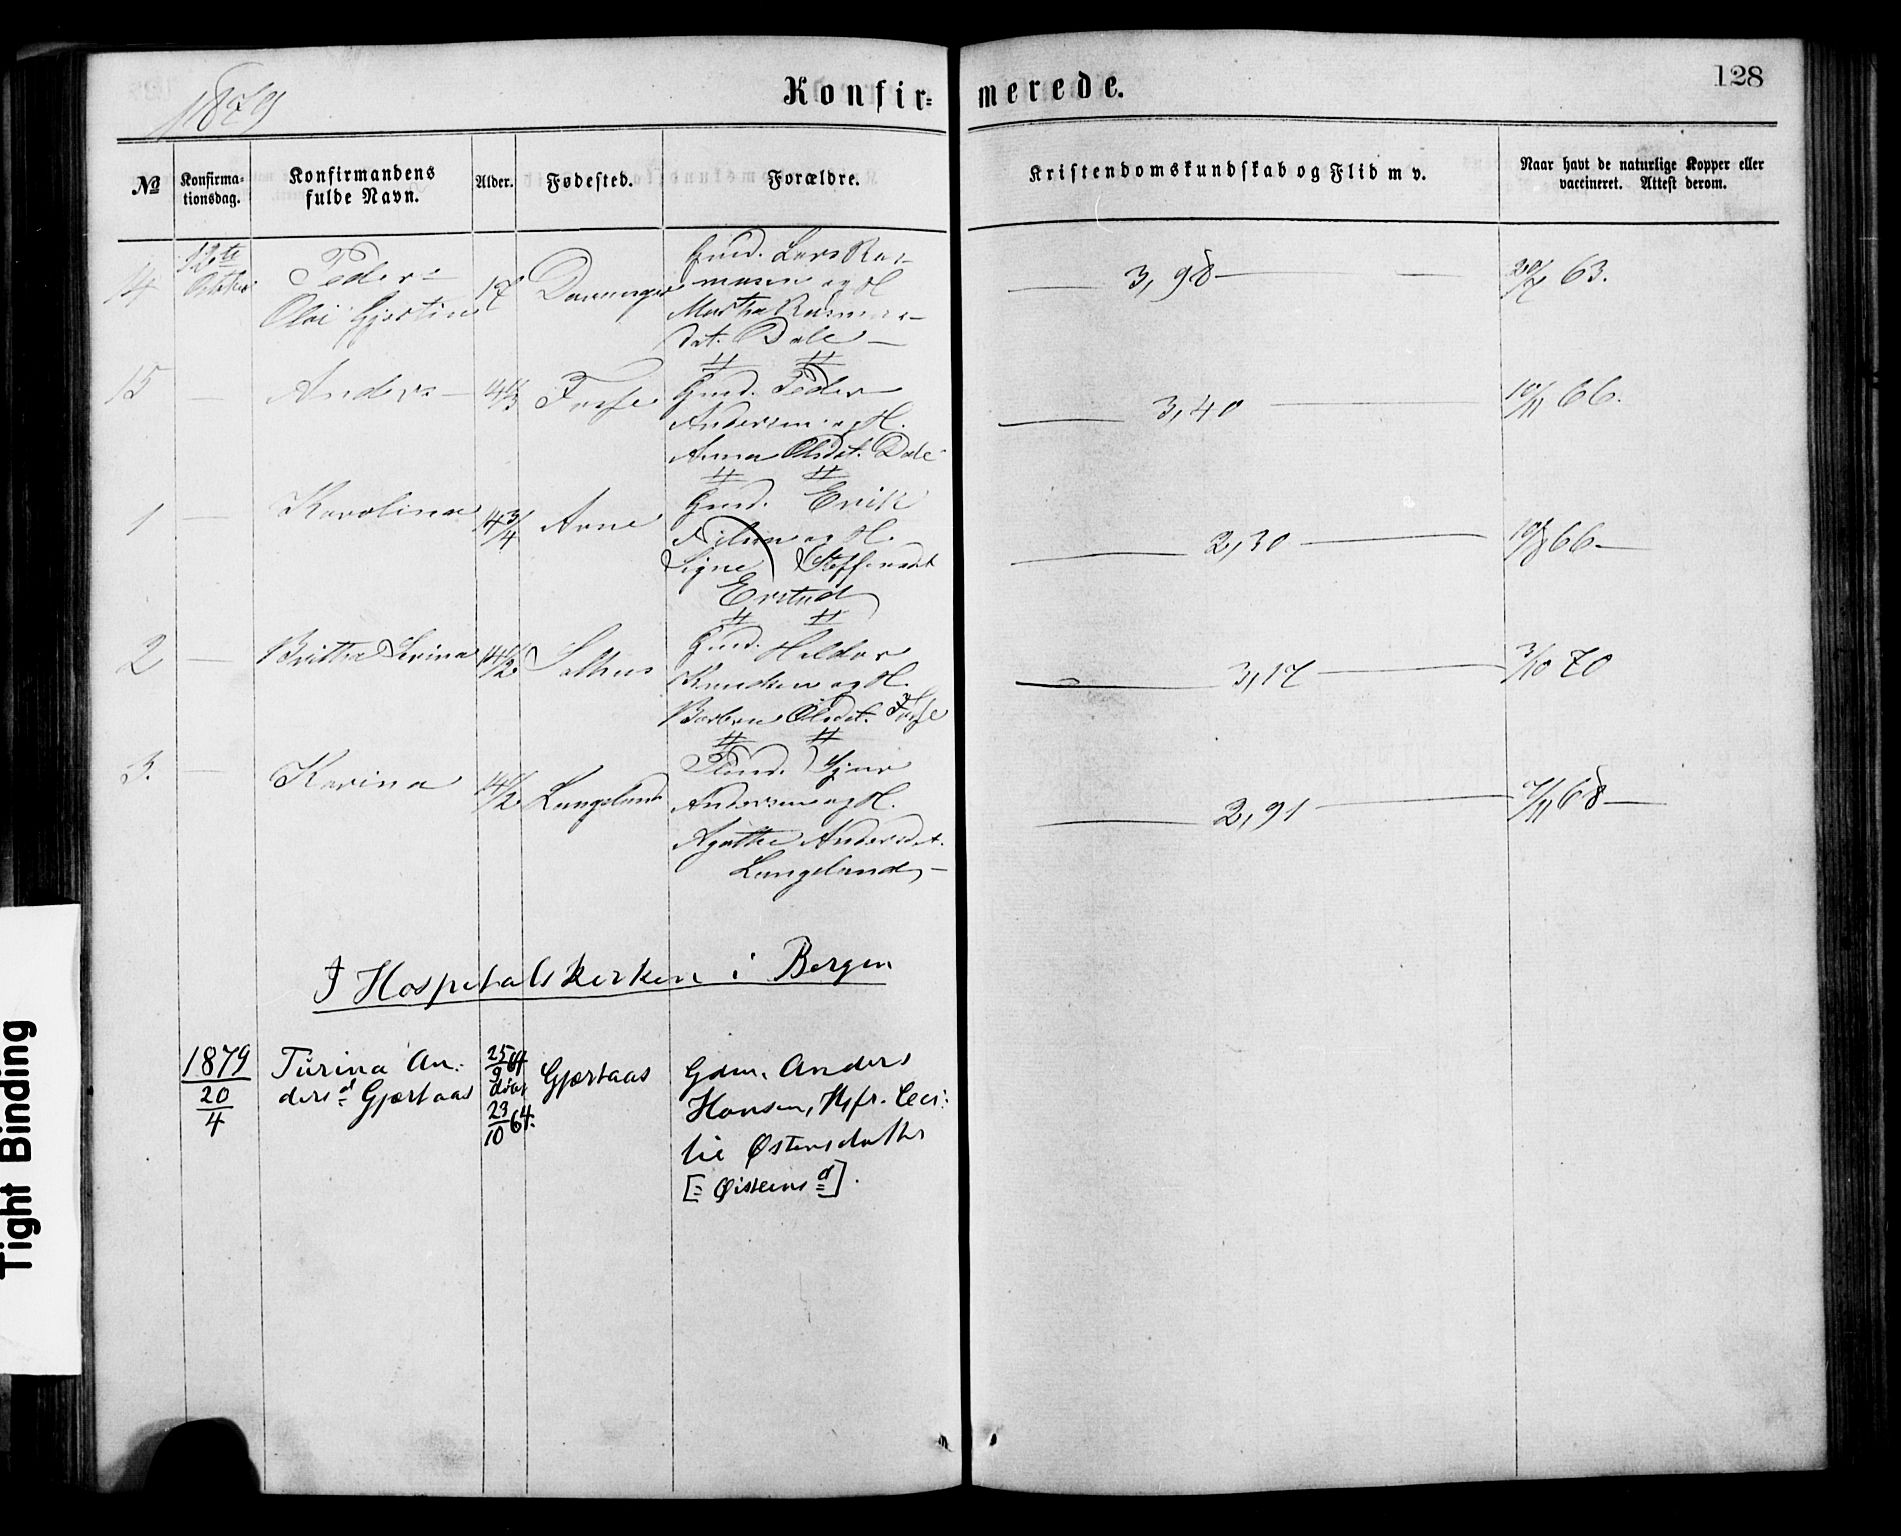 1879
Konfir=
merede.
128
№
Konfirma-
tionsdag.
Konfirmandens
fulde Navn.
Alder.
Fødested.
Forældre.
Kristendomskundskab og Flid m v.
Naar havt de naturlige Kopper eller
vaccineret. Attest derom.
14
12te
Peder
17
Gmd. Lars Ras-
musen og H
Martha Rasmus-
dat. Dale
3,98
63.
15
Anders
Fosse
Gmd. Peder
Andersen og H.
Anna Olsdat. Dale
3,40
10/11 66.
1
Karolina
14 3/4
Arne
Gmd. Erik
Nilsen og H.
Signe Steffensdt
Erstad
2,30
66
2
Brittha Serina
14 1/2
Salhus
Gmd. Haldor
Knudsen og H.
Barbra Olsdat. Fosse
3,17
3/10 70
3.
Karina
14 1/2
Langeland
Sjur
Andersen og H.
Agatha Andersdat.
Langeland
2,91
7/11 68
I Hospitalskirken i Bergen
1879
20/4
Turina An-
ders d Gjertaas
25/9 64
døbt
23/10 64.
Gjertaas
Gdm. Anders
Hansen, Hfr. Ceci-
lie Østensdatter
[= Øisteins d].
Tight Binding